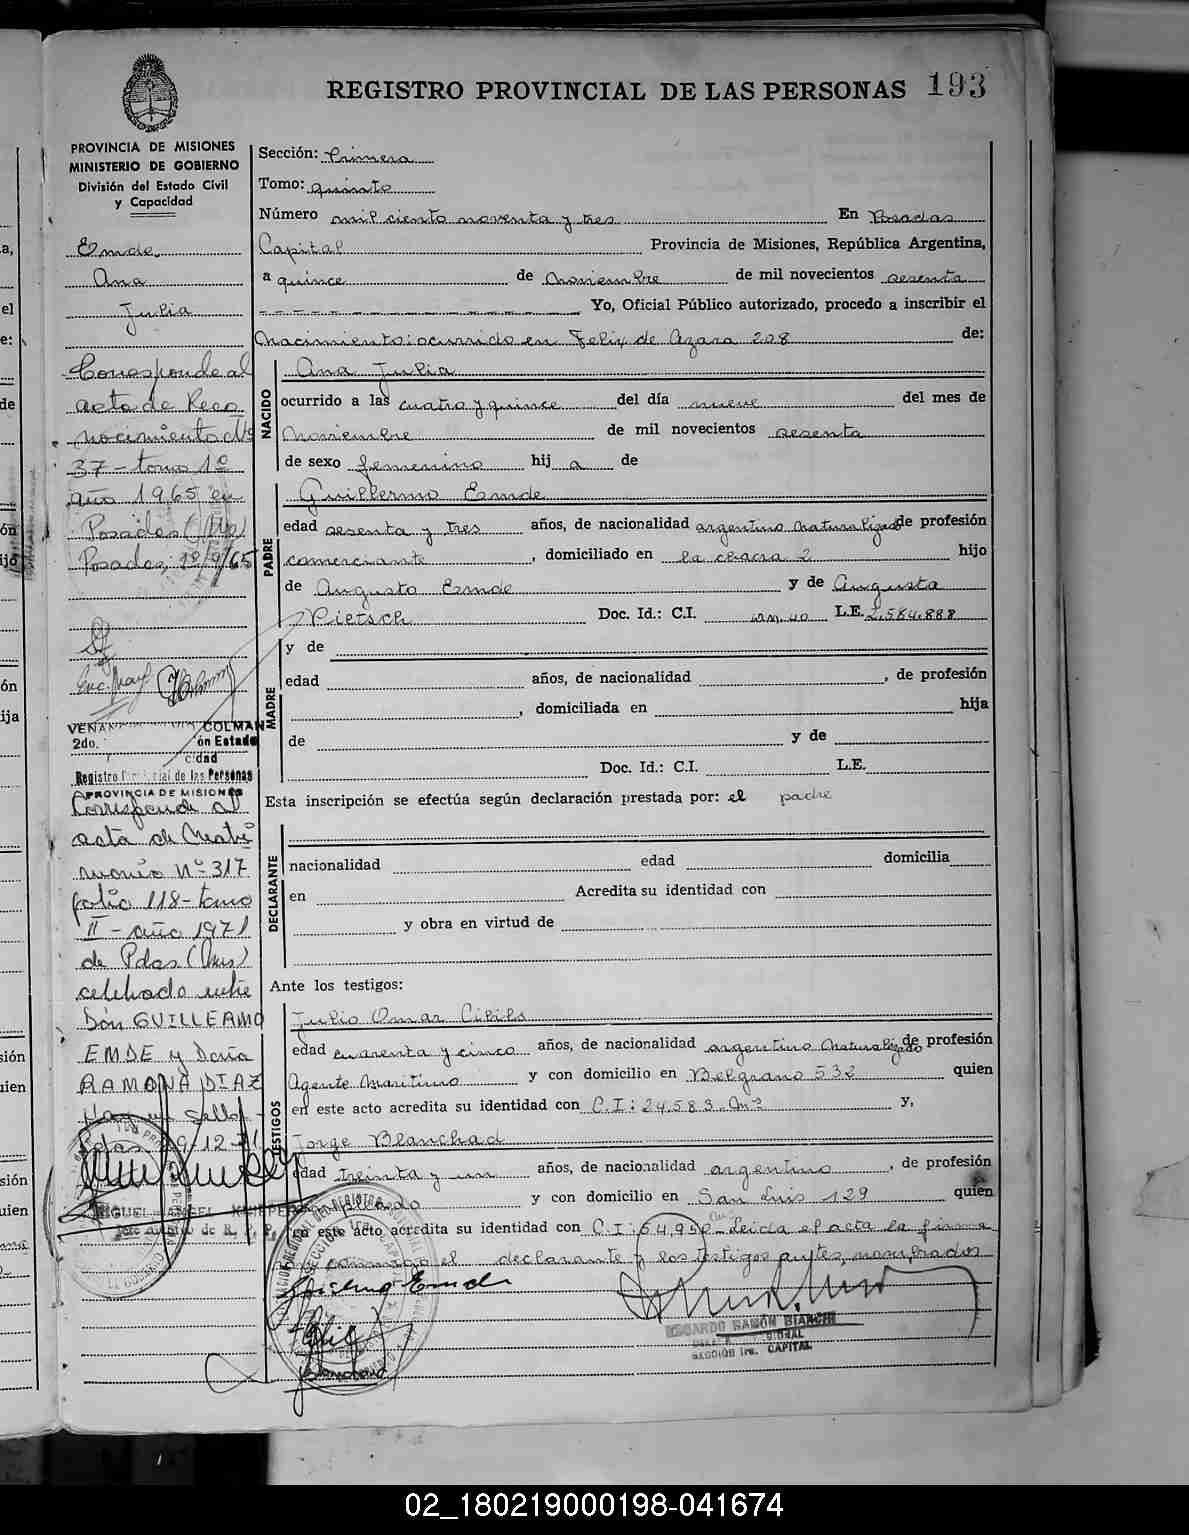 REGISTRO PROVINCIAL DE LAS PERSONAS 193
PROVINCIA DE MISIONES
MINISTERIO DE GOBIERNO
División del Estado Civil
y Capacidad
Emde,
Ana
Julia
Corresponde al
acta de Reco
nocimiento Nº
37 - tomo 1º
año 1965 en
Posadas (Mnes)
Posadas, 18/9/65
COLMAN
2do. ón Estado
cidad
Registro Provincial de las Personas
PROVINCIA DE MISIONES
Corresponde al
acta de Matri
monio Nº 317
folio 118 - tomo
II - año 1971
de Pdas (Mnes)
celebrado entre
Don GUILLERMO
EMDE y Doña
RAMONA DIAZ
Hay un sello -
MIGUEL ANGEL
Sección: Primera
Tomo: quinto
Número mil ciento noventa y tres En Posadas
Capital Provincia de Misiones, República Argentina,
a quince de Noviembre de mil novecientos sesenta
Yo, Oficial Público autorizado, procedo a inscribir el
Nacimiento: ocurrido en Felix de Azara 208 de:
NACIDO
Ana Julia
ocurrido a las cuatro y quince del día nueve del mes de
Noviembre de mil novecientos sesenta
de sexo femenino hij a de
PADRE
Guillermo Emde
edad sesenta y tres años, de nacionalidad argentino naturalizado de profesión
comerciante, domiciliado en la chacra 2 hijo
de Augusto Emde y de Augusta
Pietsch Doc. Id.: C.I. L.E. 2.584.888
MADRE
y de
edad años, de nacionalidad, de profesión
, domiciliada en hija
de y de
Doc. Id.: C.I. L.E.
Esta inscripción se efectúa según declaración prestada por: el padre
DECLARANTE
nacionalidad edad domicilia
en Acredita su identidad con
y obra en virtud de
Ante los testigos:
TESTIGOS
Julio Omar Cibils
edad cuarenta y cinco años, de nacionalidad argentino naturalizado de profesión
Agente Maritimo y con domicilio en Belgrano 532 quien
en este acto acredita su identidad con C.I: 24.583. y,
Jorge Blanchad
edad treinta y un años, de nacionalidad argentino, de profesión
y con domicilio en San Luis 129 quien
en este acto acredita su identidad con C.I: Leida el acta la firma
conmigo el declarante y los testigos antes nombrados
EDGARDO RAMÓN BIANCHI
SECCIÓN 1ra. CAPITAL
02_180219000198-041674